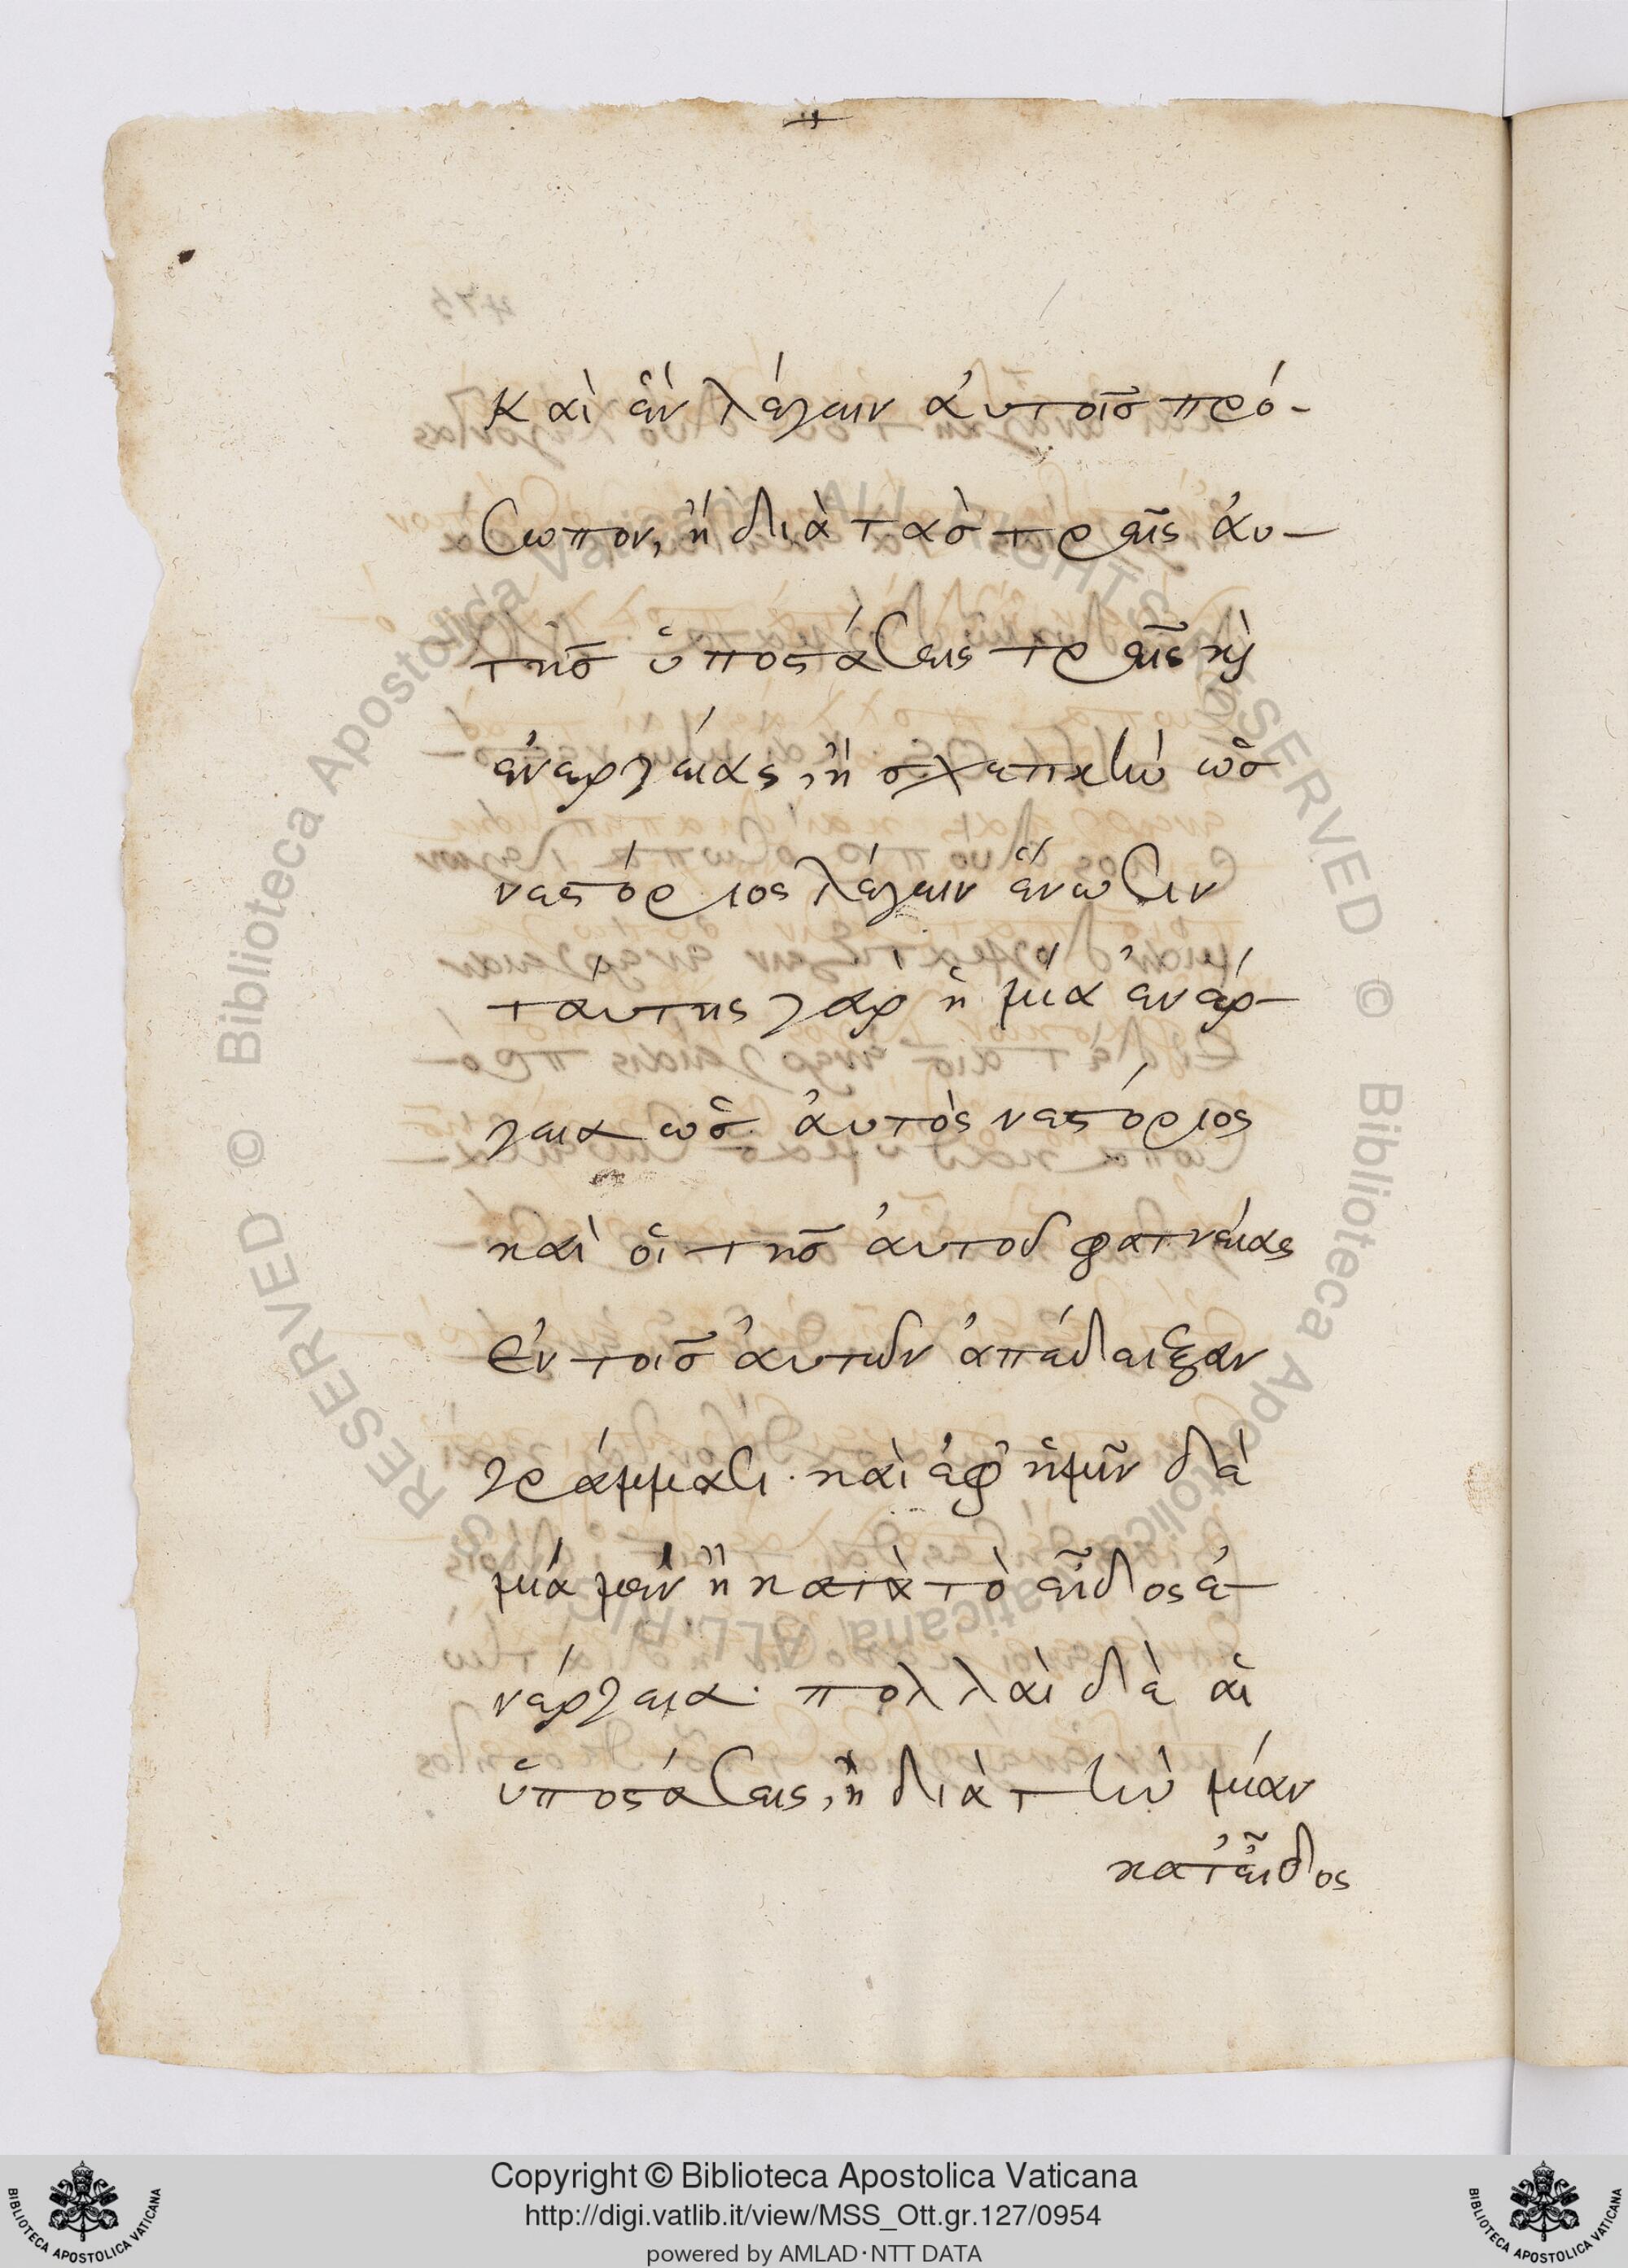 καὶ ἓν λέγειν ἀυτοῖσ πρό-
σωπον, ἢ διὰ τασ τρεῖς ἀυ-
τῆσ ὑποστάσεις τρεῖς κὶ
ἐνεργείας, ἢ σχετικὴν ὡσ
νεστόριος λέγειν ἕνωσιν
ταύτης γὰρ ἡ μία ἐνέρ-
γεια ὡσ ἀυτὸς νεστόριος
καὶ οἱ τῆσ ἀυτοῦ φατνείας
Ἐν τοῖσ ἀυτῶν ἀπέδειξαν
γράμμασι. καὶ ἐφ' ἡμῖν δὲ
μία μὲν ἡ κατὰ τὸ εἶδος ἐ-
νέργεια. πολλὰι δὲ ἁι
ὑποστάσεις, ἢ διὰ τὴν μίαν
κατ' εἶδος
Copyright © Biblioteca Apostolica Vaticana
http://digi.vatlib.it/view/MSS_Ott.gr.127/0954
powered by AMLAD·NTT DATA
BIBLIOTECA APOSTOLICA VATICANA
BIBLIOTECA APOSTOLICA VATICANA
© Biblioteca Apostolica Vaticana ALL RIGHTS RESERVED
© Biblioteca Apostolica Vaticana ALL RIGHTS RESERVED